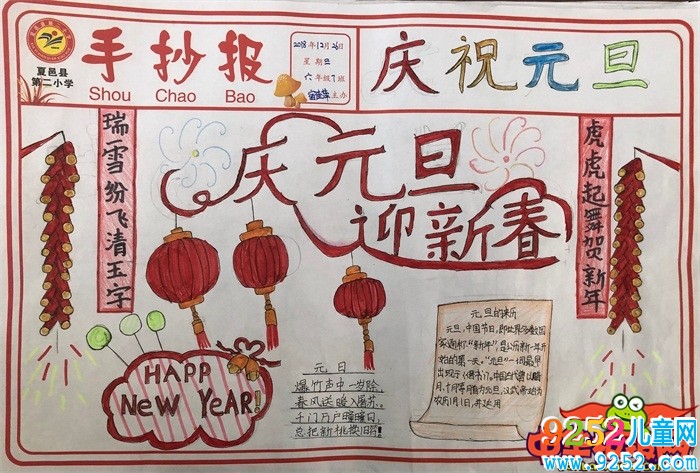 夏邑县
第二小学
手抄报
Shou Chao Bao
2018年12月26日
星期三
六年级7班
主办
庆祝元旦
瑞雪纷飞清玉宇
虎虎起舞贺新年
庆元旦
迎新春
HAPP
NeW YeAR!
元日
爆竹声中一岁除
春风送暖入屠苏
千门万户曈曈日
总把新桃换旧符
元旦的来历
元旦，中国节日，即世界多数国
家通称"新年"，是公历新一年开
始的第一天。"元旦"一词最早
出现于《晋书》。
9252儿童网
www.9252.com